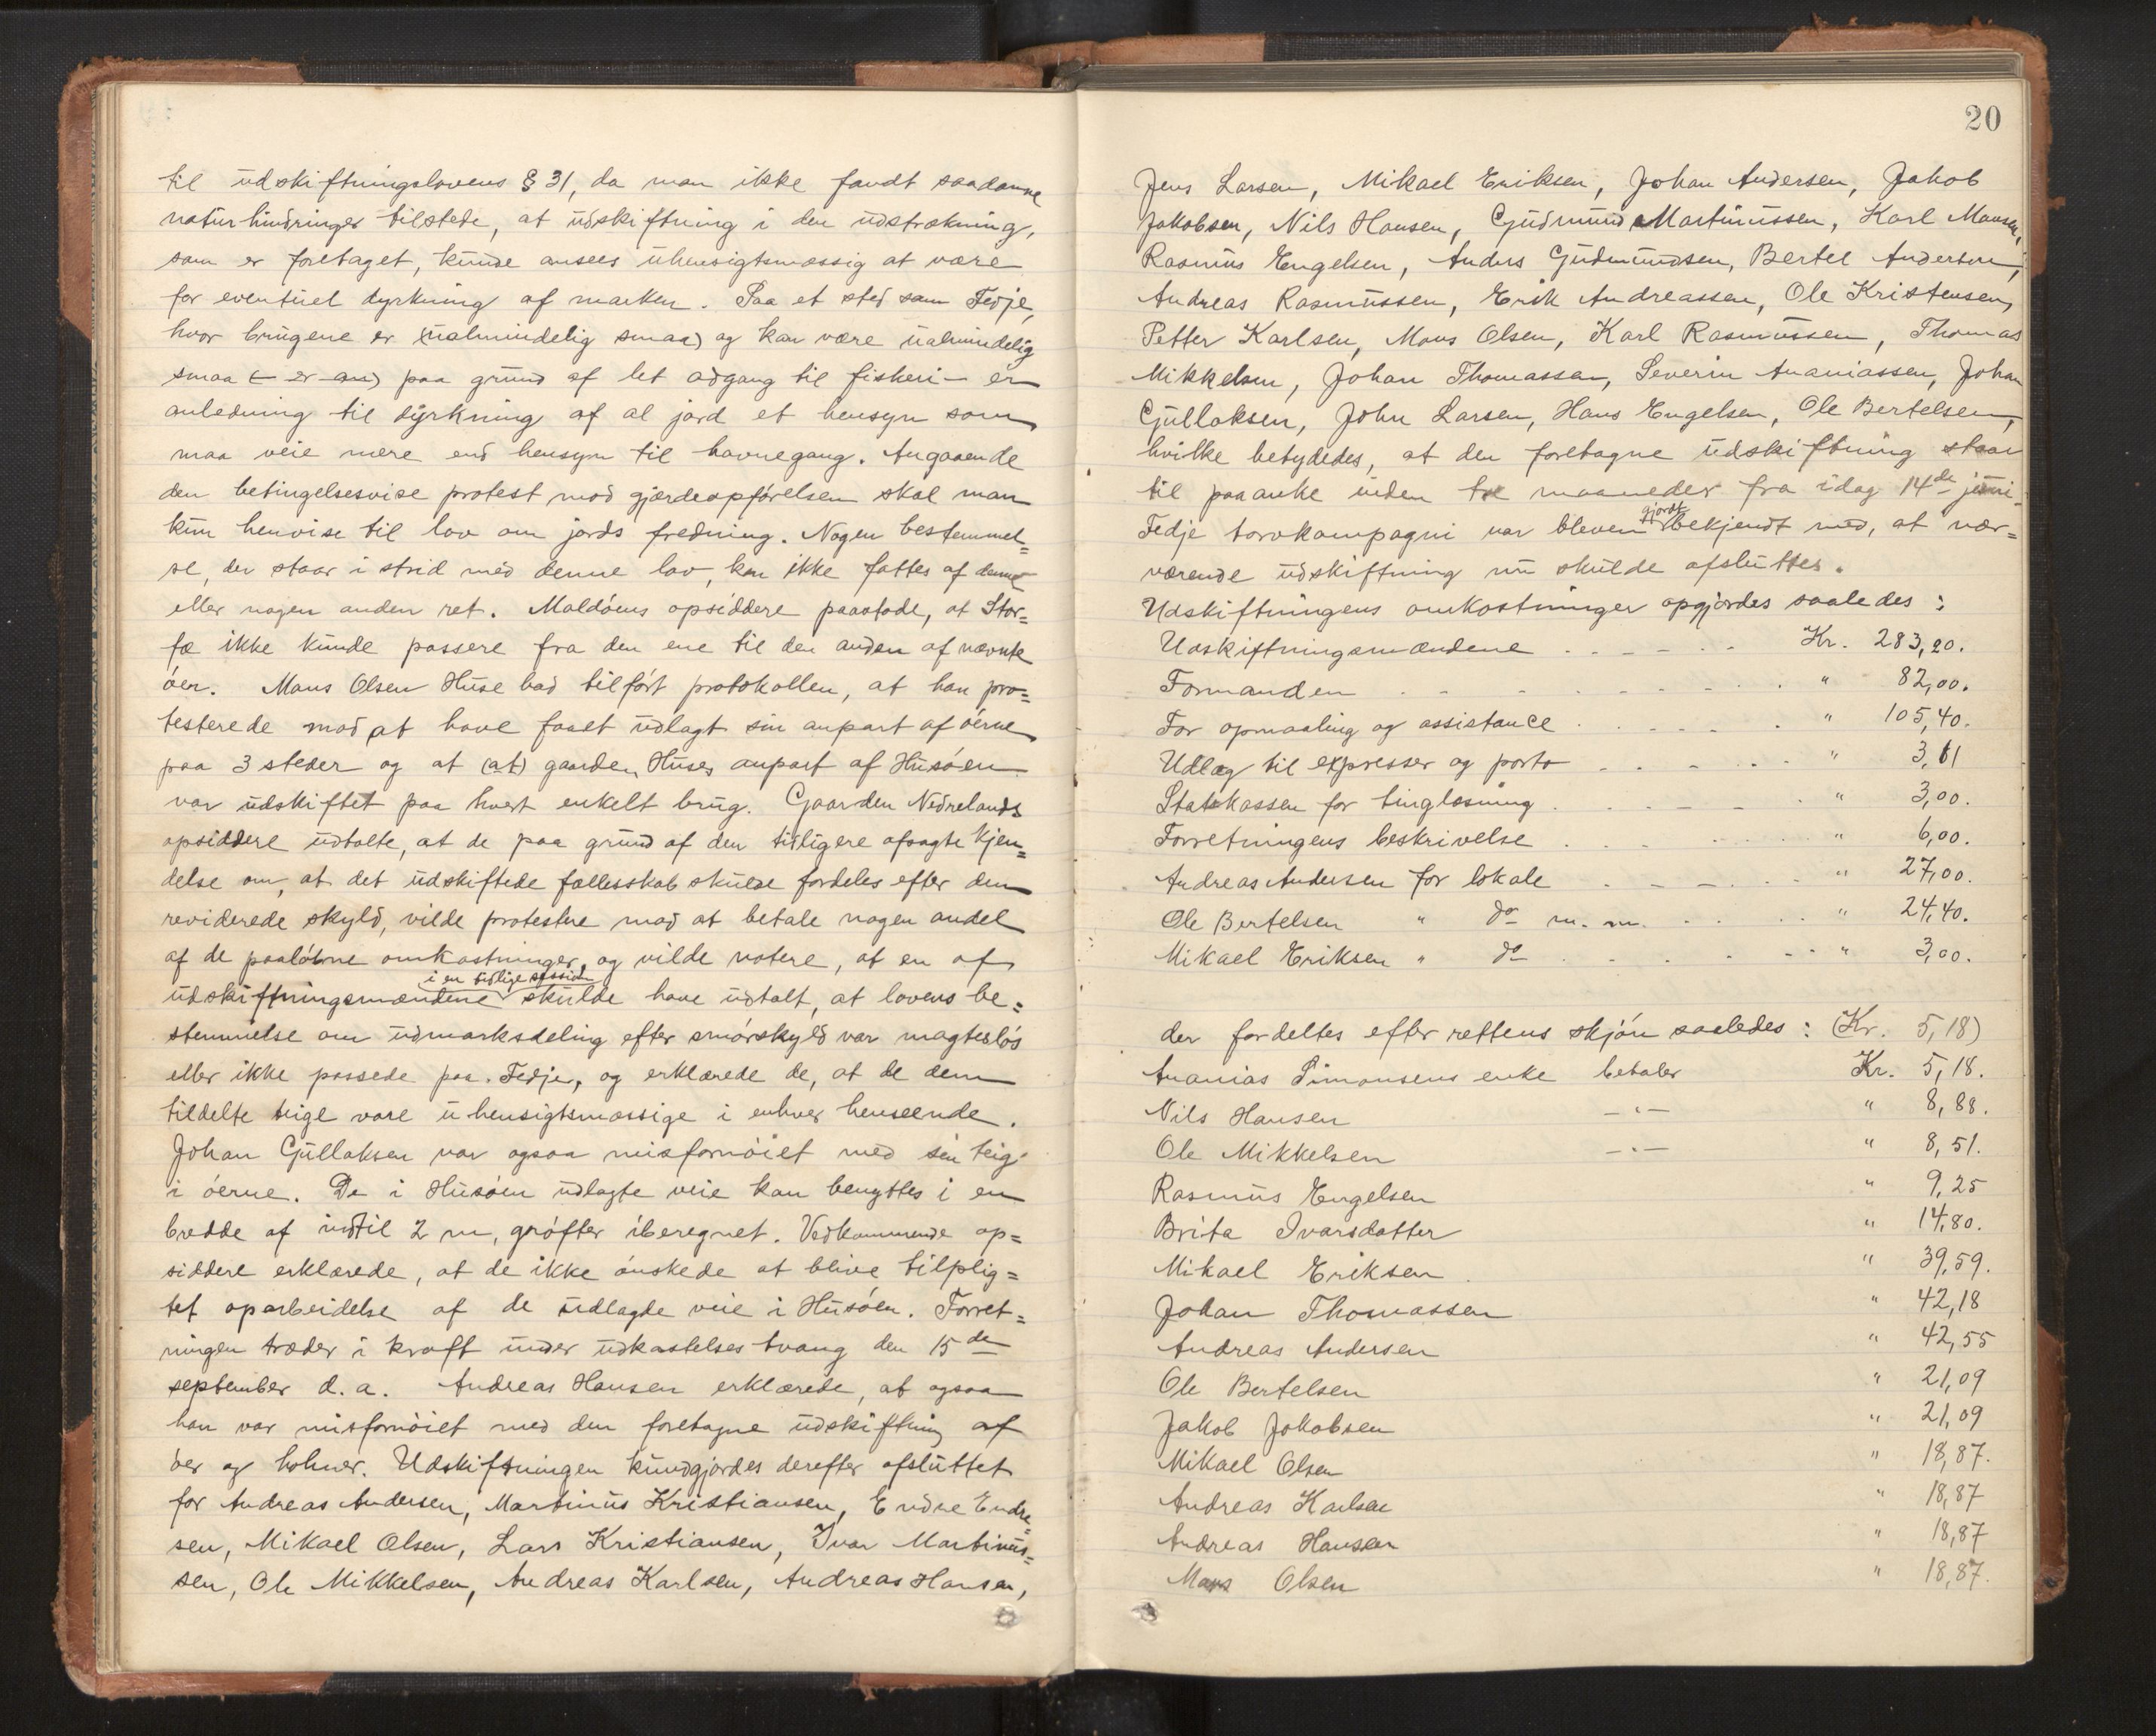 til udskiftningslovens § 31, da man ikke fandt saadanne
naturhindringer tilstede, at udskiftning i den udstrækning,
som er foretaget, kunde ansees uhensigtsmæssig at være
for eventuel dyrkning af marken. Paa et sted som Fedje,
hvor brugene er (ualmindelig smaa) og kan være ualmindelig
smaa (– er an) paa grund af let adgang til fiskeri – er
anledning til dyrkning af al jord et hensyn som
maa veie mere end hensyn til havnegang. Angaaende
den betingelsesvise protest mod gjærdeopførelsen skal man
kun henvise til lov om jords fredning. Nogen bestemmel=
se, der staar i strid med denne lov, kan ikke fattes af denne
eller nogen anden ret. Moldøens opsiddere paastode, at Stor=
fæ ikke kunde passere fra den ene til den anden af nævnte
øer. Mons Olsen Huse bad tilført protokollen, at han pro=
testerede mod at have faaet udlagt sin anpart af øerne
paa 3 steder og at (at) gaarden Huses anpart af Husøen
var udskiftet paa hvert enkelt brug. Gaarden Nedrelands
opsiddere udtalte, at de paa grund af den tidligere afsagte kjen=
delse om, at det udskiftede fællesskab skulde fordeles efter den
reviderede skyld, vilde protestere mod at betale nogen andel
af de paaløbne omkostninger, og vilde notere, at en af
i en tidlige session
udskiftningsmændene skulde have udtalt, at lovens be=
stemmelse om udmarksdeling efter smørskyld var magtesløs
eller ikke passede paa Fedje, og erklærede de, at de dem
tildelte teige vare uhensigtsmæssige i enhver henseende.
Johan Gullaksen var ogsaa misfornøiet med sin teig
i øerne. De i Husøen udlagte veie kan benyttes i en
bredde af indtil 2 m, grøfter iberegnet. Vedkommende op=
siddere erklærede, at de ikke ønskede at blive tilplig=
tet oparbeidelse af de udlagde veie i Husøen. Forret=
ningen træder i kraft under udkastelses tvang den 15de
september d.a. Andreas Hansen erklærede, at ogsaa
han var misfornøiet med den foretagne udskiftning af
øer og holmer. Udskiftningen kundgjordes derefter afsluttet
for Andreas Andersen, Martinus Kristiansen, Endre Endre=
sen, Mikael Olsen, Lars Kristiansen, Ivar Martinus=
sen, Ole Mikkelsen, Andreas Karlsen, Andreas Hansen,
20
Jens Larsen, Mikael Eriksen, Johan Andersen, Jakob
Jakobsen, Nils Hansen, Gudmund Martinussen, Karl Monsen,
Rasmus Engelsen, Anders Gudmundsen, Bertel Andersen,
Andreas Rasmussen, Erik Andreassen, Ole Kristensen,
Petter Karlsen, Mons Olsen, Karl Rasmussen, Thomas
Mikkelsen, Johan Thomassen, Severin Ananiassen, Johan
Gullaksen, John Larsen, Hans Engelsen, Ole Bertelsen,
hvilke betydedes, at den foretagne udskiftning staar
til paaanke inden tre maaneder fra idag 14de juni.
gjordt
Fedje torvkompagni var bleven bekjendt med, at nær=
værende udskiftning nu skulde afsluttes.
Udskiftningens omkostninger opgjordes saaledes:
Udskiftningsmændene Kr. 283,20.
Formanden " 82,00.
For opmaaling og assistance " 105,40.
Udlæg til expresser og porto " 3,61
Statskassen for tinglæsning " 3,00.
Forretningens beskrivelse " 6,00.
Andreas Andersen for lokale " 27,00.
Ole Bertelsen " do m.m. " 24,40.
Mikael Eriksen " do " 3,00.
der fordeltes efter rettens skjøn saaledes: (Kr. 5,18)
Ananias Simonsens enke betaler Kr. 5,18.
Nils Hansen –"– " 8,88.
Ole Mikkelsen –"– " 8,51.
Rasmus Engelsen " 9,25
Brita Ivarsdatter " 14,80.
Mikael Eriksen " 39,59.
Johan Thomassen " 42,18
Andreas Andersen " 42,55
Ole Bertelsen " 21,09
Jakob Jakobsen " 21,09
Mikael Olsen " 18,87.
Andreas Karlsen " 18,87
Andreas Hansen " 18,87
Mons Olsen " 18,87.